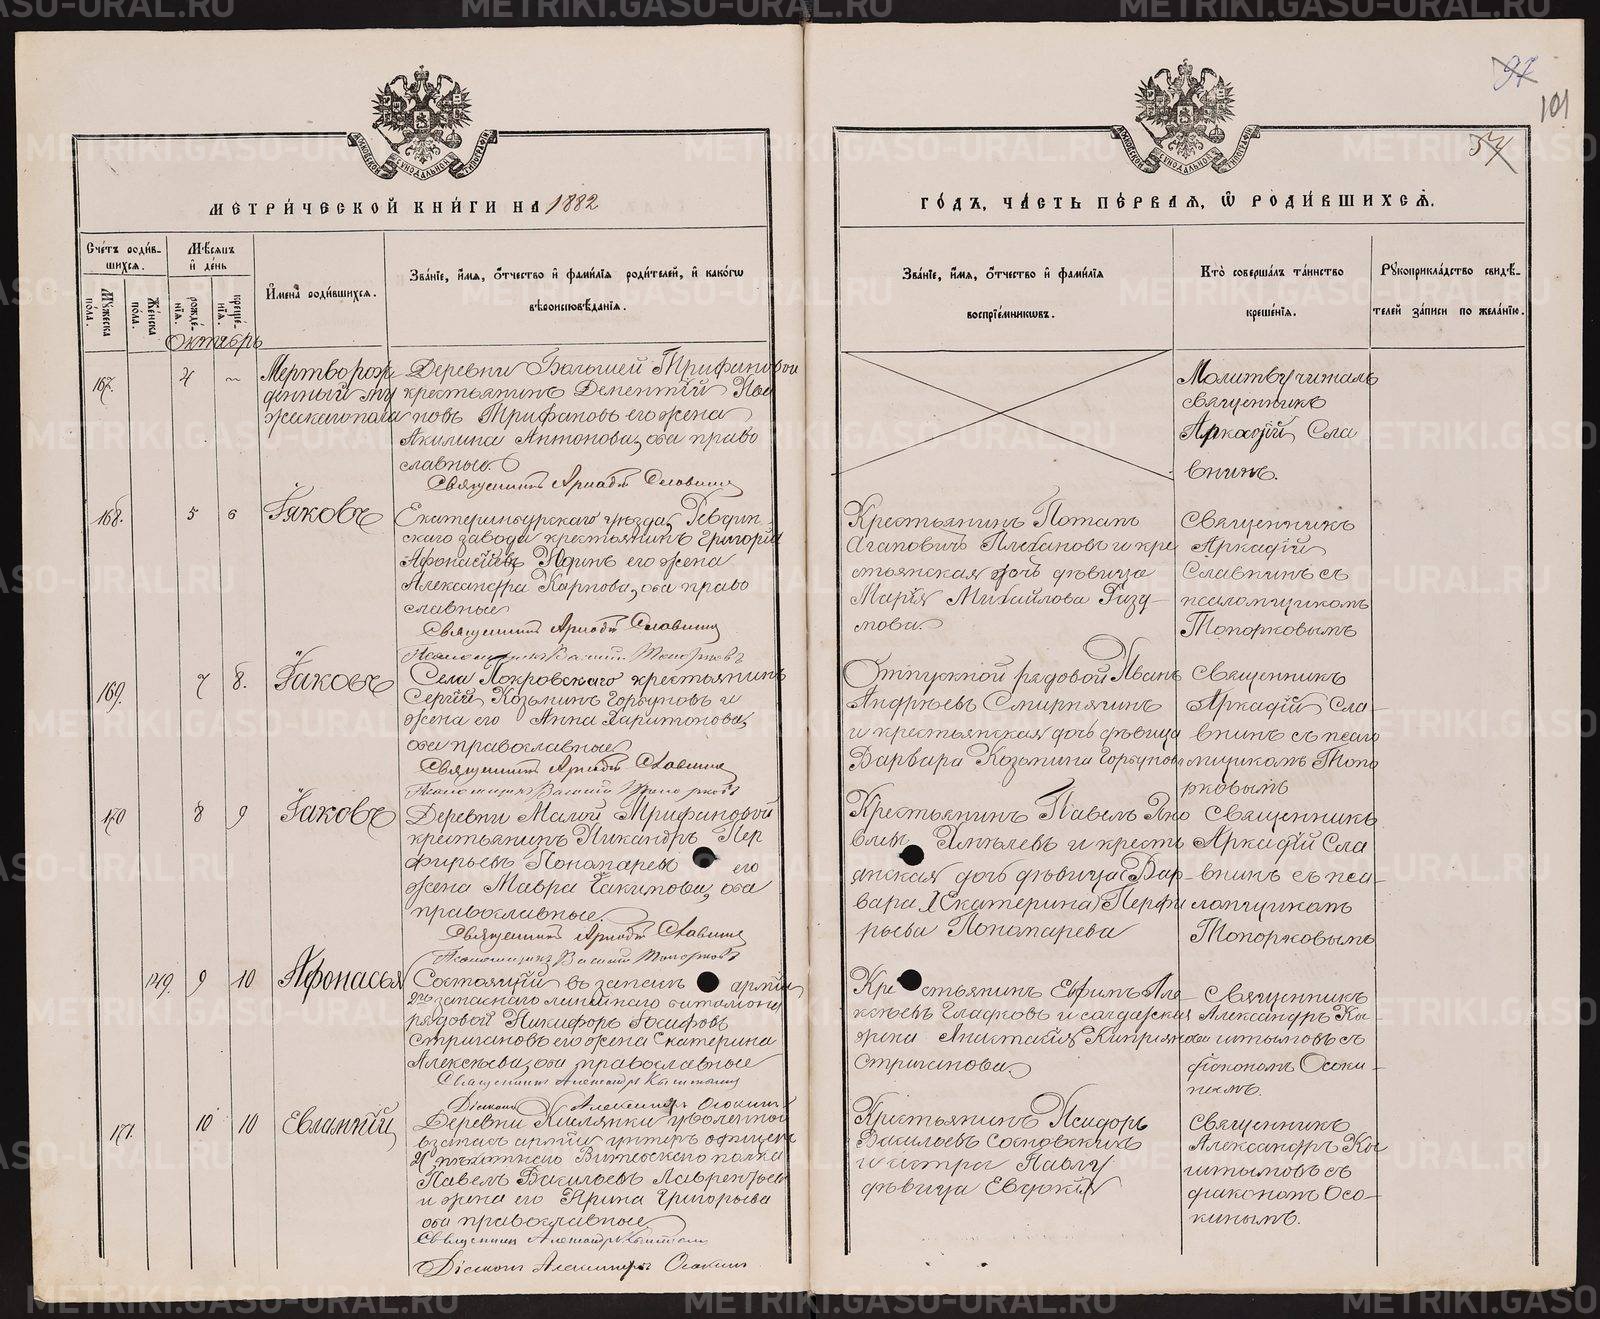 97
101
57
МЕТРИ́ЧЕСКОЙ КНИ́ГИ НА 1882
ГО́ДЪ, ЧА́СТЬ ПЕ́РВАЯ, Ѡ РОДИ́ВШИХСЯ.
Сче́тъ роди́в-
шихся.
Му́жеска по́ла.
Же́нска по́ла.
Мѣ́сяцъ
и҆ де́нь
рожде́-
нїя.
креще́-
нїя.
И҆мена̀ роди́вшихся.
Зва́нїе, и҆́мя, ѻ҆́тчество и҆ фами́лїя роди́телей, и҆ како́гѡ
вѣроисповѣ́данїя.
Зва́нїе, и҆́мя, ѻ҆́тчество и҆ фами́лїя
воспрїе́мникѡвъ.
Кто̀ соверша́лъ та́инство
креще́нїя.
Рꙋкоприкла́дство свидѣ́-
телей за́писи по жела́нїю.
Октябрь
167.
4
~
Мертворож-
денный му
жескаго пола
Деревни Большей Трифановой
крестьянинъ Дементій Ива
новъ Трифановъ его жена
Акилина Антонова, оба право
славные.
Священникъ Аркадій Славнинъ
Молитву читалъ
священникъ
Аркадій Сла
внинъ.
168.
5
6
Іаковъ
Екатеринбургскаго уѣзда, Ревдин-
скаго завода крестьянинъ Григорій
Афонасіевъ Юринъ его жена
Александра Карпова, оба право
славные
Священникъ Аркадій Славнинъ
Псаломщикъ Василій Топорковъ
Крестьянинъ Потапъ
Агаповичъ Плехановъ и кре
стьянская дочь дѣвица
Марія Михайлова Ризу-
нова.
Священникъ
Аркадій
Славнинъ съ
псаломщикомъ
Топорковымъ
169.
7
8.
Іаковъ
Села Покровскаго крестьянинъ
Сергій Козьминъ Горбуновъ и
жена его Анна Харитонова,
оба православные
Священникъ Аркадій Славнинъ
Псаломщикъ Василій Топорковъ
Отпускной рядовой Иванъ
Андрѣевъ Смирнягинъ
и крестьянская дочь дѣвица
Варвара Козьмина Горбунова
Священникъ
Аркадій Сла-
внинъ съ псало
мщикомъ Топо
рковымъ
170
8
9
Іаковъ
Деревни Малой Трифановой
крестьянинъ Никандръ Пер
фирьевъ Пономаревъ его
жена Мавра Іакимова, оба
православные.
Священникъ Аркадій Славнинъ
Псаломщикъ Василій Топорковъ
Крестьянинъ Павелъ
и кресть
янская дочь дѣвица Вар-
вара (Екатерина) Перфи
рьева Пономарева
Священникъ
Аркадій Сла
внинъ съ пса-
ломщикомъ
Топорковымъ
149.
9
10
Афонасья
Состоящій въ запасѣ арміи
запаснаго линейнаго баталіона
рядовой Никифоръ Іосифовъ
Стригановъ его жена Екатерина
Алексѣева, оба православные
Священникъ Александръ Кыштымовъ
Діаконъ Александръ Осокинъ
Крестьянинъ Ефимъ Але-
ксѣевъ Гладковъ и солдатская
жена Анастасія Кипріянова
Стриганова.
Священникъ
Александръ Кы-
штымовъ съ
діакономъ Осоки-
нымъ.
171.
10
10
Евлампій
Деревни Кислянки уволенной
въ запасъ арміи унтеръ офицеръ
пѣхотнаго Витебскаго полка
Павелъ Васильевъ Лаврентьевъ
и жена его Ирина Григорьева
оба православные
Священникъ Александръ Кыштымовъ
Діаконъ Александръ Осокинъ
Крестьянинъ Исидоръ
Васильевъ Сосновскихъ
и сестра Павлу
дѣвица Евдокія
Священникъ
Александръ Кы
штымовъ съ
діакономъ Осо-
кинымъ.
METRIKI.GASO-URAL.RU